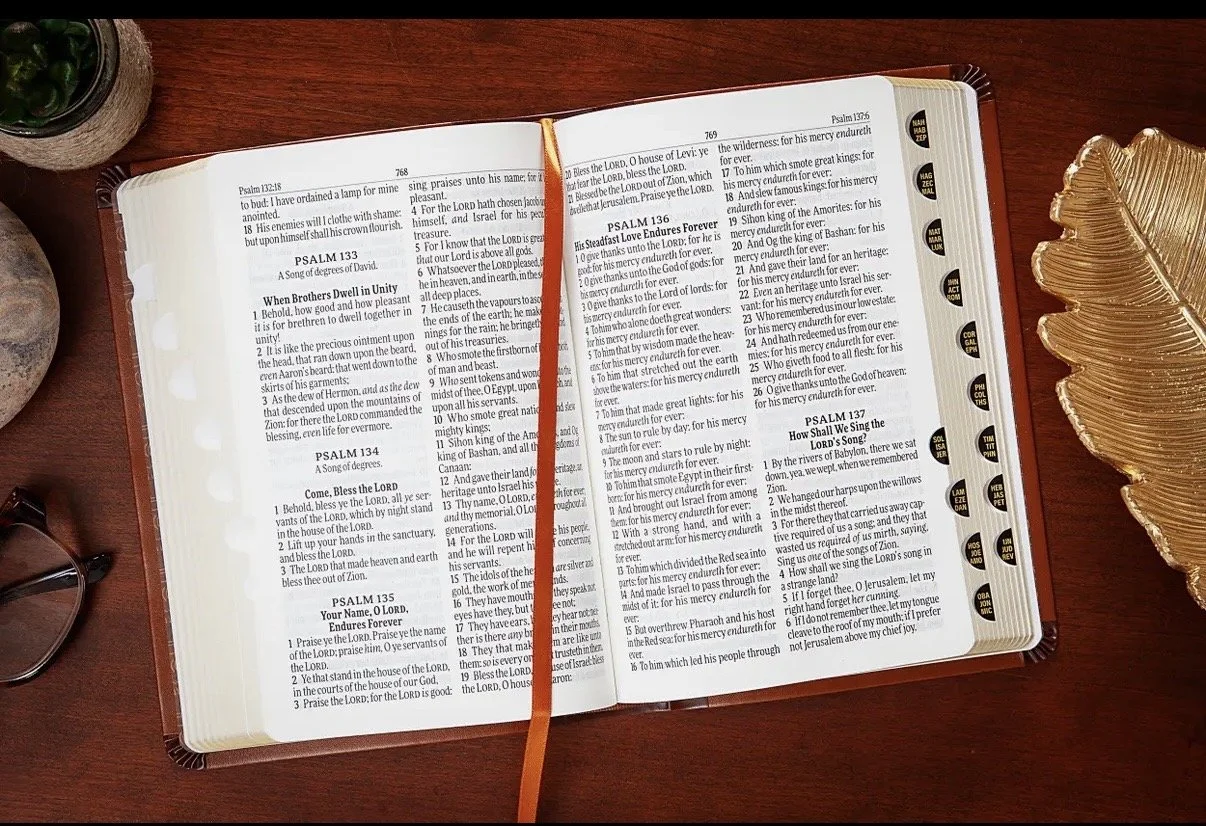 768
Psalm 132:18
to bud: I have ordained a lamp for mine
anointed.
18 His enemies will I clothe with shame:
but upon himself shall his crown flourish.
PSALM 133
A Song of degrees of David.
When Brothers Dwell in Unity
1 Behold, how good and how pleasant
it is for brethren to dwell together in
unity!
2 It is like the precious ointment upon
the head, that ran down upon the beard,
even Aaron's beard: that went down to the
skirts of his garments;
3 As the dew of Hermon, and as the dew
that descended upon the mountains of
Zion: for there the LORD commanded the
blessing, even life for evermore.
PSALM 134
A Song of degrees.
Come, Bless the LORD
1 Behold, bless ye the LORD, all ye ser-
vants of the LORD, which by night stand
in the house of the LORD.
2 Lift up your hands in the sanctuary,
and bless the LORD.
3 The LORD that made heaven and earth
bless thee out of Zion.
PSALM 135
Your Name, O LORD,
Endures Forever
1 Praise ye the LORD. Praise ye the name
of the LORD; praise him, O ye servants of
the LORD.
2 Ye that stand in the house of the LORD,
in the courts of the house of our God,
3 Praise the LORD; for the LORD is good:
sing praises unto his name; for
pleasant.
4 For the LORD hath chosen Jacob
himself, and Israel for his
treasure.
5 For I know that the LORD is great
that our Lord is above all gods.
6 Whatsoever the LORD pleased,
he in heaven, and in earth, in the
all deep places.
7 He causeth the vapours to
the ends of the earth; he
nings for the rain; he
out of his treasuries.
8 Who smote the firstborn of
of man and beast.
9 Who sent tokens and
midst of thee, O Egypt, upon and
upon all his servants.
10 Who smote great and slew
mighty kings;
11 Sihon king of the and Og
king of Bashan, and all
Canaan:
12 And gave their land
heritage unto Israel his
13 Thy name, O LORD, for ever;
and thy memorial, O throughout all
generations.
14 For the LORD will his people,
and he will repent concerning
his servants.
15 The idols of the are silver and
gold, the work of
16 They have they speak not;
eyes have they, but not;
17 They have ears, hear not; nei-
ther is there any in their mouths.
18 They that are like unto
them: so is every trusteth in them.
19 Bless the LORD, of Israel: bless
the LORD, O
769
Psalm 137:6
20 Bless the LORD, O house of Levi: ye
that fear the LORD, bless the LORD.
21 Blessed be the LORD out of Zion, which
dwelleth at Jerusalem. Praise ye the LORD.
PSALM 136
His Steadfast Love Endures Forever
1 O give thanks unto the LORD; for he is
good: for his mercy endureth for ever.
2 O give thanks unto the God of gods: for
his mercy endureth for ever.
3 O give thanks to the Lord of lords: for
his mercy endureth for ever.
4 To him who alone doeth great wonders:
for his mercy endureth for ever.
5 To him that by wisdom made the heav-
ens: for his mercy endureth for ever.
6 To him that stretched out the earth
above the waters: for his mercy endureth
for ever.
7 To him that made great lights: for his
mercy endureth for ever:
8 The sun to rule by day: for his mercy
endureth for ever:
9 The moon and stars to rule by night:
for his mercy endureth for ever.
10 To him that smote Egypt in their first-
born: for his mercy endureth for ever:
11 And brought out Israel from among
them: for his mercy endureth for ever:
12 With a strong hand, and with a
stretched out arm: for his mercy endureth
for ever.
13 To him which divided the Red sea into
parts: for his mercy endureth for ever:
14 And made Israel to pass through the
midst of it: for his mercy endureth for
ever:
15 But overthrew Pharaoh and his host
in the Red sea: for his mercy endureth for
ever.
16 To him which led his people through
the wilderness: for his mercy endureth
for ever.
17 To him which smote great kings: for
his mercy endureth for ever:
18 And slew famous kings: for his mercy
endureth for ever:
19 Sihon king of the Amorites: for his
mercy endureth for ever:
20 And Og the king of Bashan: for his
mercy endureth for ever:
21 And gave their land for an heritage:
for his mercy endureth for ever:
22 Even an heritage unto Israel his ser-
vant: for his mercy endureth for ever.
23 Who remembered us in our low estate:
for his mercy endureth for ever:
24 And hath redeemed us from our ene-
mies: for his mercy endureth for ever.
25 Who giveth food to all flesh: for his
mercy endureth for ever.
26 O give thanks unto the God of heaven:
for his mercy endureth for ever.
PSALM 137
How Shall We Sing the
LORD's Song?
1 By the rivers of Babylon, there we sat
down, yea, we wept, when we remembered
Zion.
2 We hanged our harps upon the willows
in the midst thereof.
3 For there they that carried us away cap-
tive required of us a song; and they that
wasted us required of us mirth, saying,
Sing us one of the songs of Zion.
4 How shall we sing the LORD's song in
a strange land?
5 If I forget thee, O Jerusalem, let my
right hand forget her cunning.
6 If I do not remember thee, let my tongue
cleave to the roof of my mouth; if I prefer
not Jerusalem above my chief joy.
NAH
HAB
ZEP
HAG
ZEC
MAL
MAT
MAR
LUK
JHN
ACT
ROM
COR
GAL
EPH
PHI
COL
THS
SOL
ISA
JER
TIM
TIT
PHN
LAM
EZE
DAN
HEB
JAS
PET
HOS
JOE
AMO
JHN
JUD
REV
OBA
JON
MIC